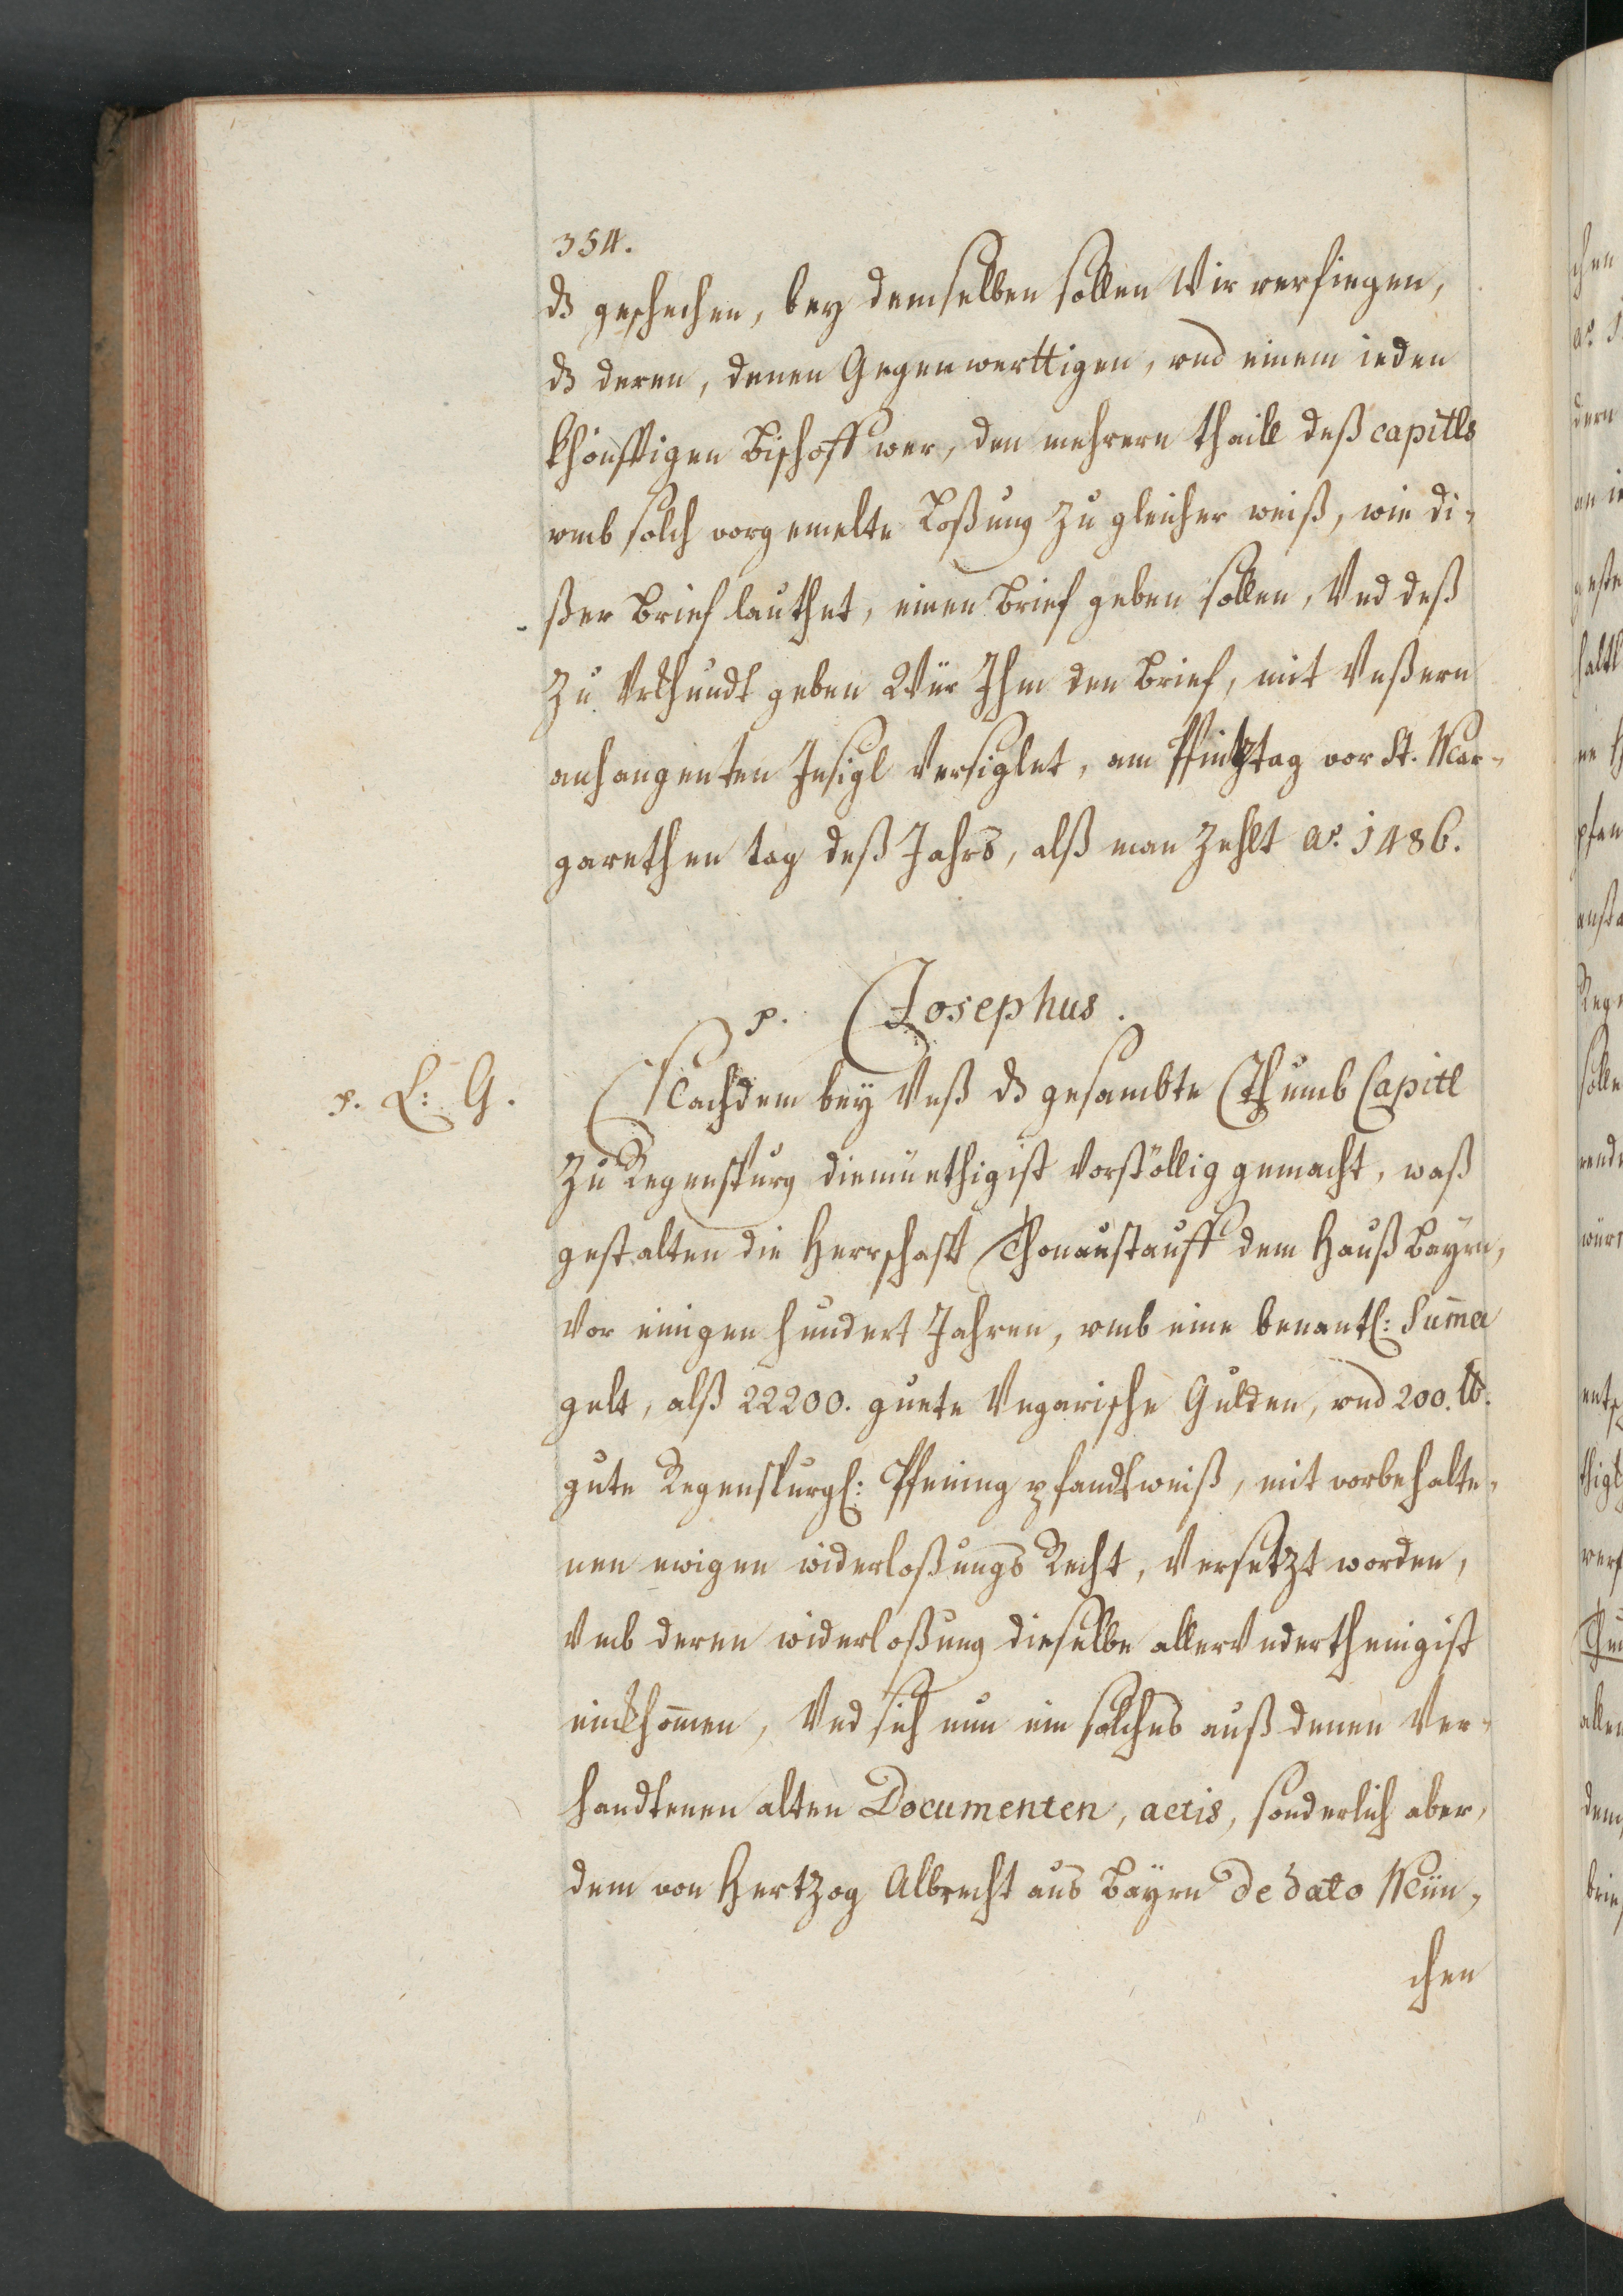 354.
dz geschechen, bey demselben sollen Wir verfiegen,
dz deren, denen Gegenwerttigen, vnd einem ieden
khönfftigen Bischoff wer, den mehrern thaill deß capitls
vmb solch vorgemelte Loßung zu gleicher weiß, wie di-
ßer Brief lauthet, einen Brief geben sollen, Vnd deß
zu Vrkhundt geben Wür Ihm den Brief, mit Vnßern
anhangenten Insigl Versiglet, am Pfintztag vor St. Mar-
garethen tag deß Jahrs, alß man zehlt ao. 1486.
p. Josephus.
p. L: G.
Nachdem bey Vnß dz gesambte Thumb Capitl
zu Regenspurg diemüethigist Vorstöllig gemacht, waß
gestalten die Herrschafft Thonaustauff dem Hauß Bayrn,
Vor einigen hundert Jahren, vmb eine benantl: Summa
gelt, alß 22200. guete Vngarische Gulden, vnd 200. lb.
gute Regenspurgl: Pfening pfandtweiß, mit vorbehalte-
nen ewigen widerloßungs Recht, Versetzt worden,
Vmb deren widerloßung dieselbe allerVnderthenigist
einkhommen, Vnd sich nun ein solches auß denen Ver-
handtenen alten Documenten, actis, sonderlich aber,
dem von Hertzog Albrecht aus Bayrn de dato Mün-
chen